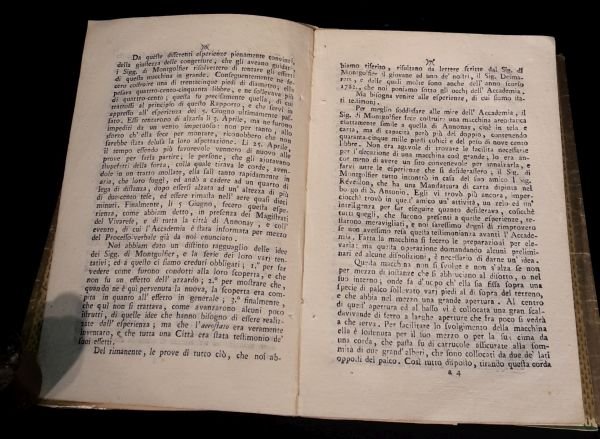 Da queste differenti esperienze pienamente convinti
della giustezza delle congetture, che gli aveano guidati
i Sigg. di Montgolfier risolvettero di tentare gli effetti
di questa macchina in grande. Conseguentemente ne fe-
cero costruire una di trentacinque piedi di diametro; ella
pesava quattro-cento-cinquanta libbre, e ne sollevava più
di quattro-cento; questa fu precisamente quella, di cui
trattossi al principio di questo Rapporto, e che servì in
appresso all'esperienza dei 5. Giugno ultimamente pas-
sato. Essi tentarono di alzarla li 3. Aprile, ma ne furono
impediti da un vento impetuoso: non per tanto, allo
sforzo ch'ella fece per montare, riconobbero che non
sarebbe stata delusa la loro aspettazione. Li 25. Aprile,
il tempo essendo più favorevole vennero di nuovo alle
prove per farla partire; le persone, che gli ajutavano
stupefatti della forza, colla quale tirava le corde, aven-
dole in un tratto mollate, essa salì tanto rapidamente in
aria, che loro fuggì, ed andò a cadere ad un quarto di
lega di distanza, dopo essersi alzata ad un'altezza di più
di due-cento tese, ed essere rimasta nell'aere quasi dieci
minuti. Finalmente, li 5 Giugno, fecero questa espe-
rienza, come abbiam detto, in presenza dei Magistrati
del Vivarese, e di tutta la città di Annonay, e coll'
evento, di cui l'Accademia è stata informata per mezzo
del Processo-verbale già da noi enunciato.
Noi abbiam dato un distinto ragguaglio delle idee
dei Sigg. di Montgolfier, e la serie dei loro varj ten-
tativi; ed a quello ci siamo creduti obbligati; 1.° per far
vedere come furono condotti alla loro scoperta, e che
non fu un effetto dell'azzardo; 2.° per mostrare che,
quando ne è qui pervenuta la nuova, la scoperta era com-
pita in quanto all'effetto in generale; 3.° finalmente,
che qui non si trattava, come avanzarono alcuni poco
istrutti, di quelle idee che hanno bisogno di essere realiz-
zate dall'esperienza; ma che l'aerostato era veramente
inventato, e che tutta una Città era stata testimonio de'
suoi effetti.
Del rimanente, le prove di tutto ciò, che noi ab-
biamo riferito, risultano da lettere scritte dal Sig. di
Montgolfier il giovane ad uno de' nostri, il Sig. Desma-
rets, e dalle quali molte sono anche dell'anno scorso
1782., che noi poniamo sotto gli occhi dell'Accademia.
Ma bisogna venire alle esperienze, di cui siamo sta-
ti testimonj.
Per meglio soddisfare alle mire dell'Accademia, il
Sig. di Montgolfier fece costruire una macchina areostatica
esattamente simile a quella di Annonay, cioè in tela e
carta, ma di capacità però più del doppio, contenendo
quaranta-cinque mille piedi cubici e del peso di nove cento
libbre. Non era agevole di trovare le facilità necessarie
per l'esecuzione di una macchina così grande, lo era an-
cor meno di avere un sito convenevole per innalzarla, e
farvi tutte le esperienze che si desideravano, il Sig. di
Montgolfier tutto incontrò in casa del suo amico il Sig.
Réveillon, che ha una Manifattura di carta dipinta nel
borgo di S. Antonio. Egli vi trovò più ancora, imper-
ciocchì trovò in quest'amico un'attività, un zelo ed un'
intelligenza per far eseguire quanto desiderava, cosicchè
tutti quegli, che furono presenti a queste esperienze, re-
starono meravigliati, e noi stessi avremo degni di rimprovero
se non avessimo resa questa testimonianza avanti l'Accade-
mia. Fatta la macchina si fecero le preparazioni per ele-
varla: ma questa operazione domandando alcuni prelimi-
nari ed alcune disposizioni, è necessario di darne un'idea.
Questa macchina non si svolge e non s'alza se non
per mezzo di instanze che si abbrucciano al disotto, o nel
suo interno; onde fa d'uopo ch'ella sia fissa sopra una
specie di palco sollevato varj piedi al di sopra del terreno,
e che abbia nel mezzo una grande apertura. Al centro
di quest'apertura ed al basso vi è collocata una gran scal-
davivande di ferro a larghe aperture che fra poco si vedrà
a che serva. Per facilitare lo svolgimento della macchina
ella è sostenuta per il suo mezzo o per la sua cima da
una corda, che passa su di carrucole assicurate alla som-
mità di due grand'alberi, che sono collocati da due de' lati
opposti del palco. Così tutto disposto, tirando questa corda
a 4